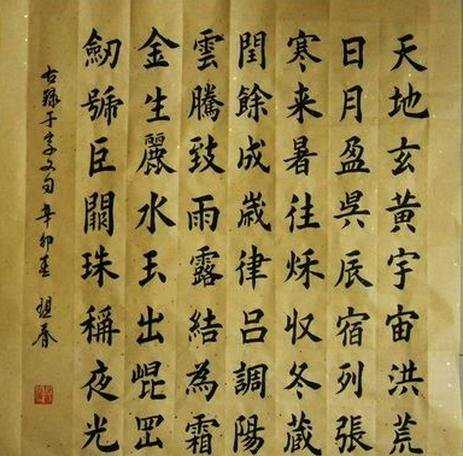 天地玄黃宇宙洪荒
日月盈昃辰宿列張
寒来暑往秋收冬蔵
閏餘成歲律呂調陽
雲騰致雨露結為霜
金生麗水玉出崐岡
劒號巨闕珠稱夜光
千字文句辛卯春